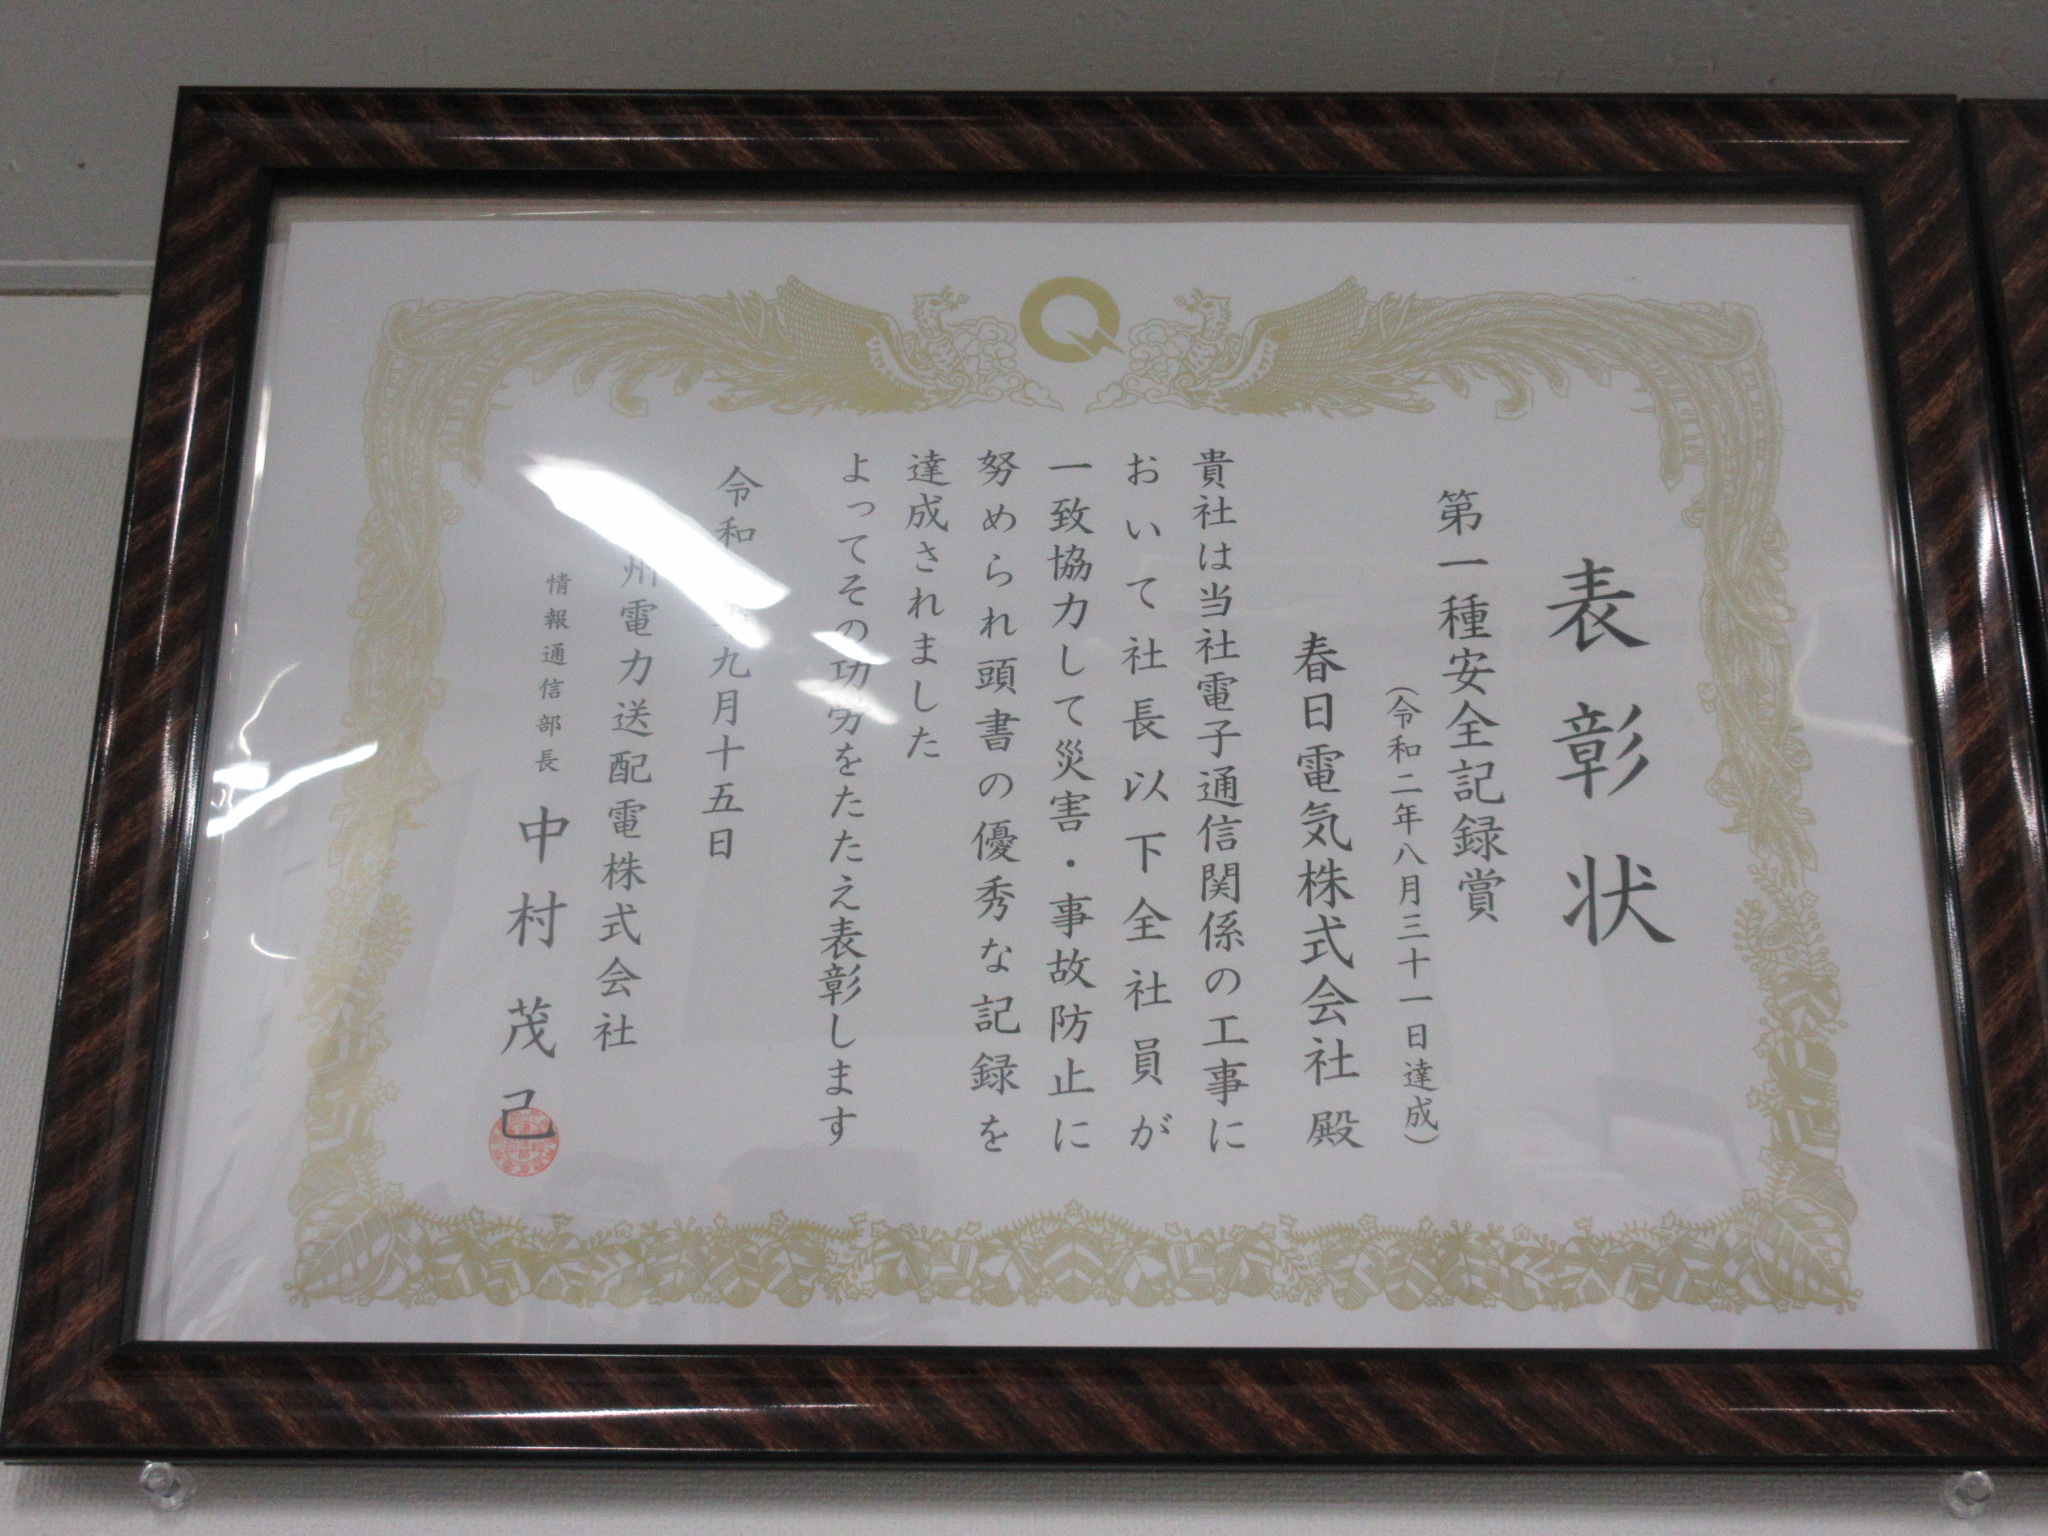 表彰状
第一種安全記録賞
(令和二年八月三十一日達成)
春日電気株式会社 殿
貴社は当社電子通信関係の工事に
おいて社長以下全社員が
一致協力して災害・事故防止に
努められ頭書の優秀な記録を
達成されました
よってその功労をたたえ表彰します
令和 九月十五日
州電力送配電株式会社
情報通信部長 中村茂己